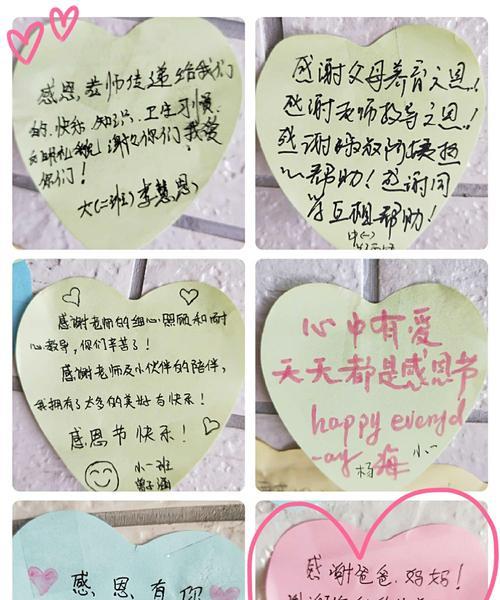 感恩,老师传递给我们
的,快乐、知识、卫生习惯、
文明礼貌!谢谢你们我爱
你们!
大(二班)李慧恩
感谢父母养育之恩!
感谢老师教导之恩!
感谢叔叔阿姨热
心帮助!感谢同
学互相帮助!
中(一)
感谢老师的细心照顾和耐
心教导,你们辛苦了!
感谢老师及小伙伴的陪伴,
我拥有了太多的美好与快乐!
感恩节快乐!
小一班
曾子涵
心中有爱
天天都是感恩节
happy everyd
-ay
杨 海 小一
感恩有你
感谢爸爸、妈妈!